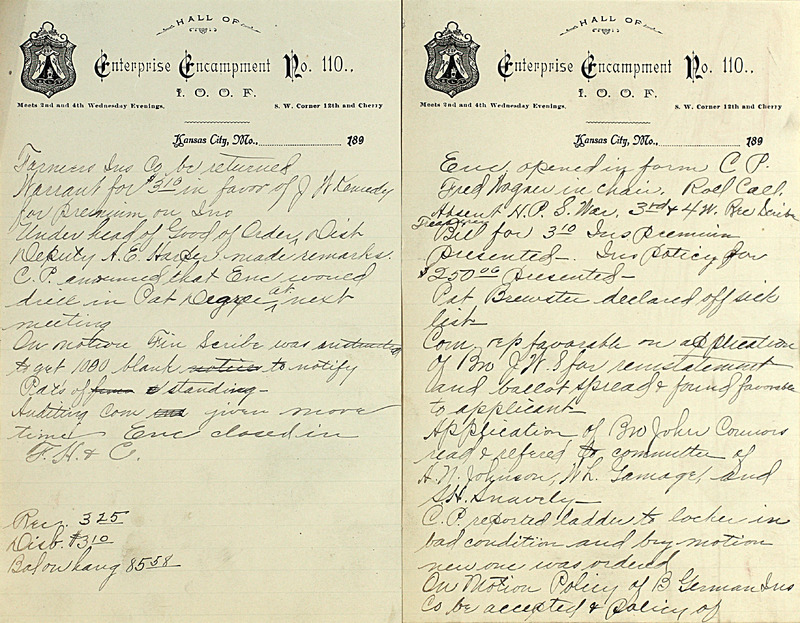 HALL OF
Enterprise Encampment No. 110..
I. O. O. F.
Meets 2nd and 4th Wednesday Evenings. S. W. Corner 12th and Cherry
Kansas City, Mo., 189
Farmers Ins Co be returned
Warrant for $3 10 in favor of J W Kennedy
for Premium on Ins
Under head of Good of Order, Dist
Deputy A. E. made remarks.
C. P. announced that Enc would
drill in Pat Degree at next
meeting
On motion Fin Scribe was instructed
to get 1000 blank notices to notify
Pats of standing-
Auditing Com given more
time Enc closed in
F. H. & C.
Rec. 3 25
Disb. $3 10
Bal on hang 85 58
HALL OF
Enterprise Encampment No. 110..
I. O. O. F.
Meets 2nd and 4th Wednesday Evenings. S. W. Corner 12th and Cherry
Kansas City, Mo., 189
Enc opened in form C P.
Fred Wagner in chair. Roll Call.
Absent H. P. S. War. 3rd & 4 W. Rec Scribe
Treasurer
Bill for 3 10 Ins premium
presented- Ins policy for
$250 00 presented-
Pat Brewster declared off sick
list-
Com rep favorable on application
of Bro J. W. S for reinstatement
and ballot spread & found favorable
to applicant-
Application of Bro John Connors
read & refered to committee of
A. N. Johnson, Wh. Gamage, and
S. H. Snavely-
C. P. reported ladder to locker in
bad condition and by motion
new one was ordered
On Motion Policy of B German Ins
Co be accepted & policy of